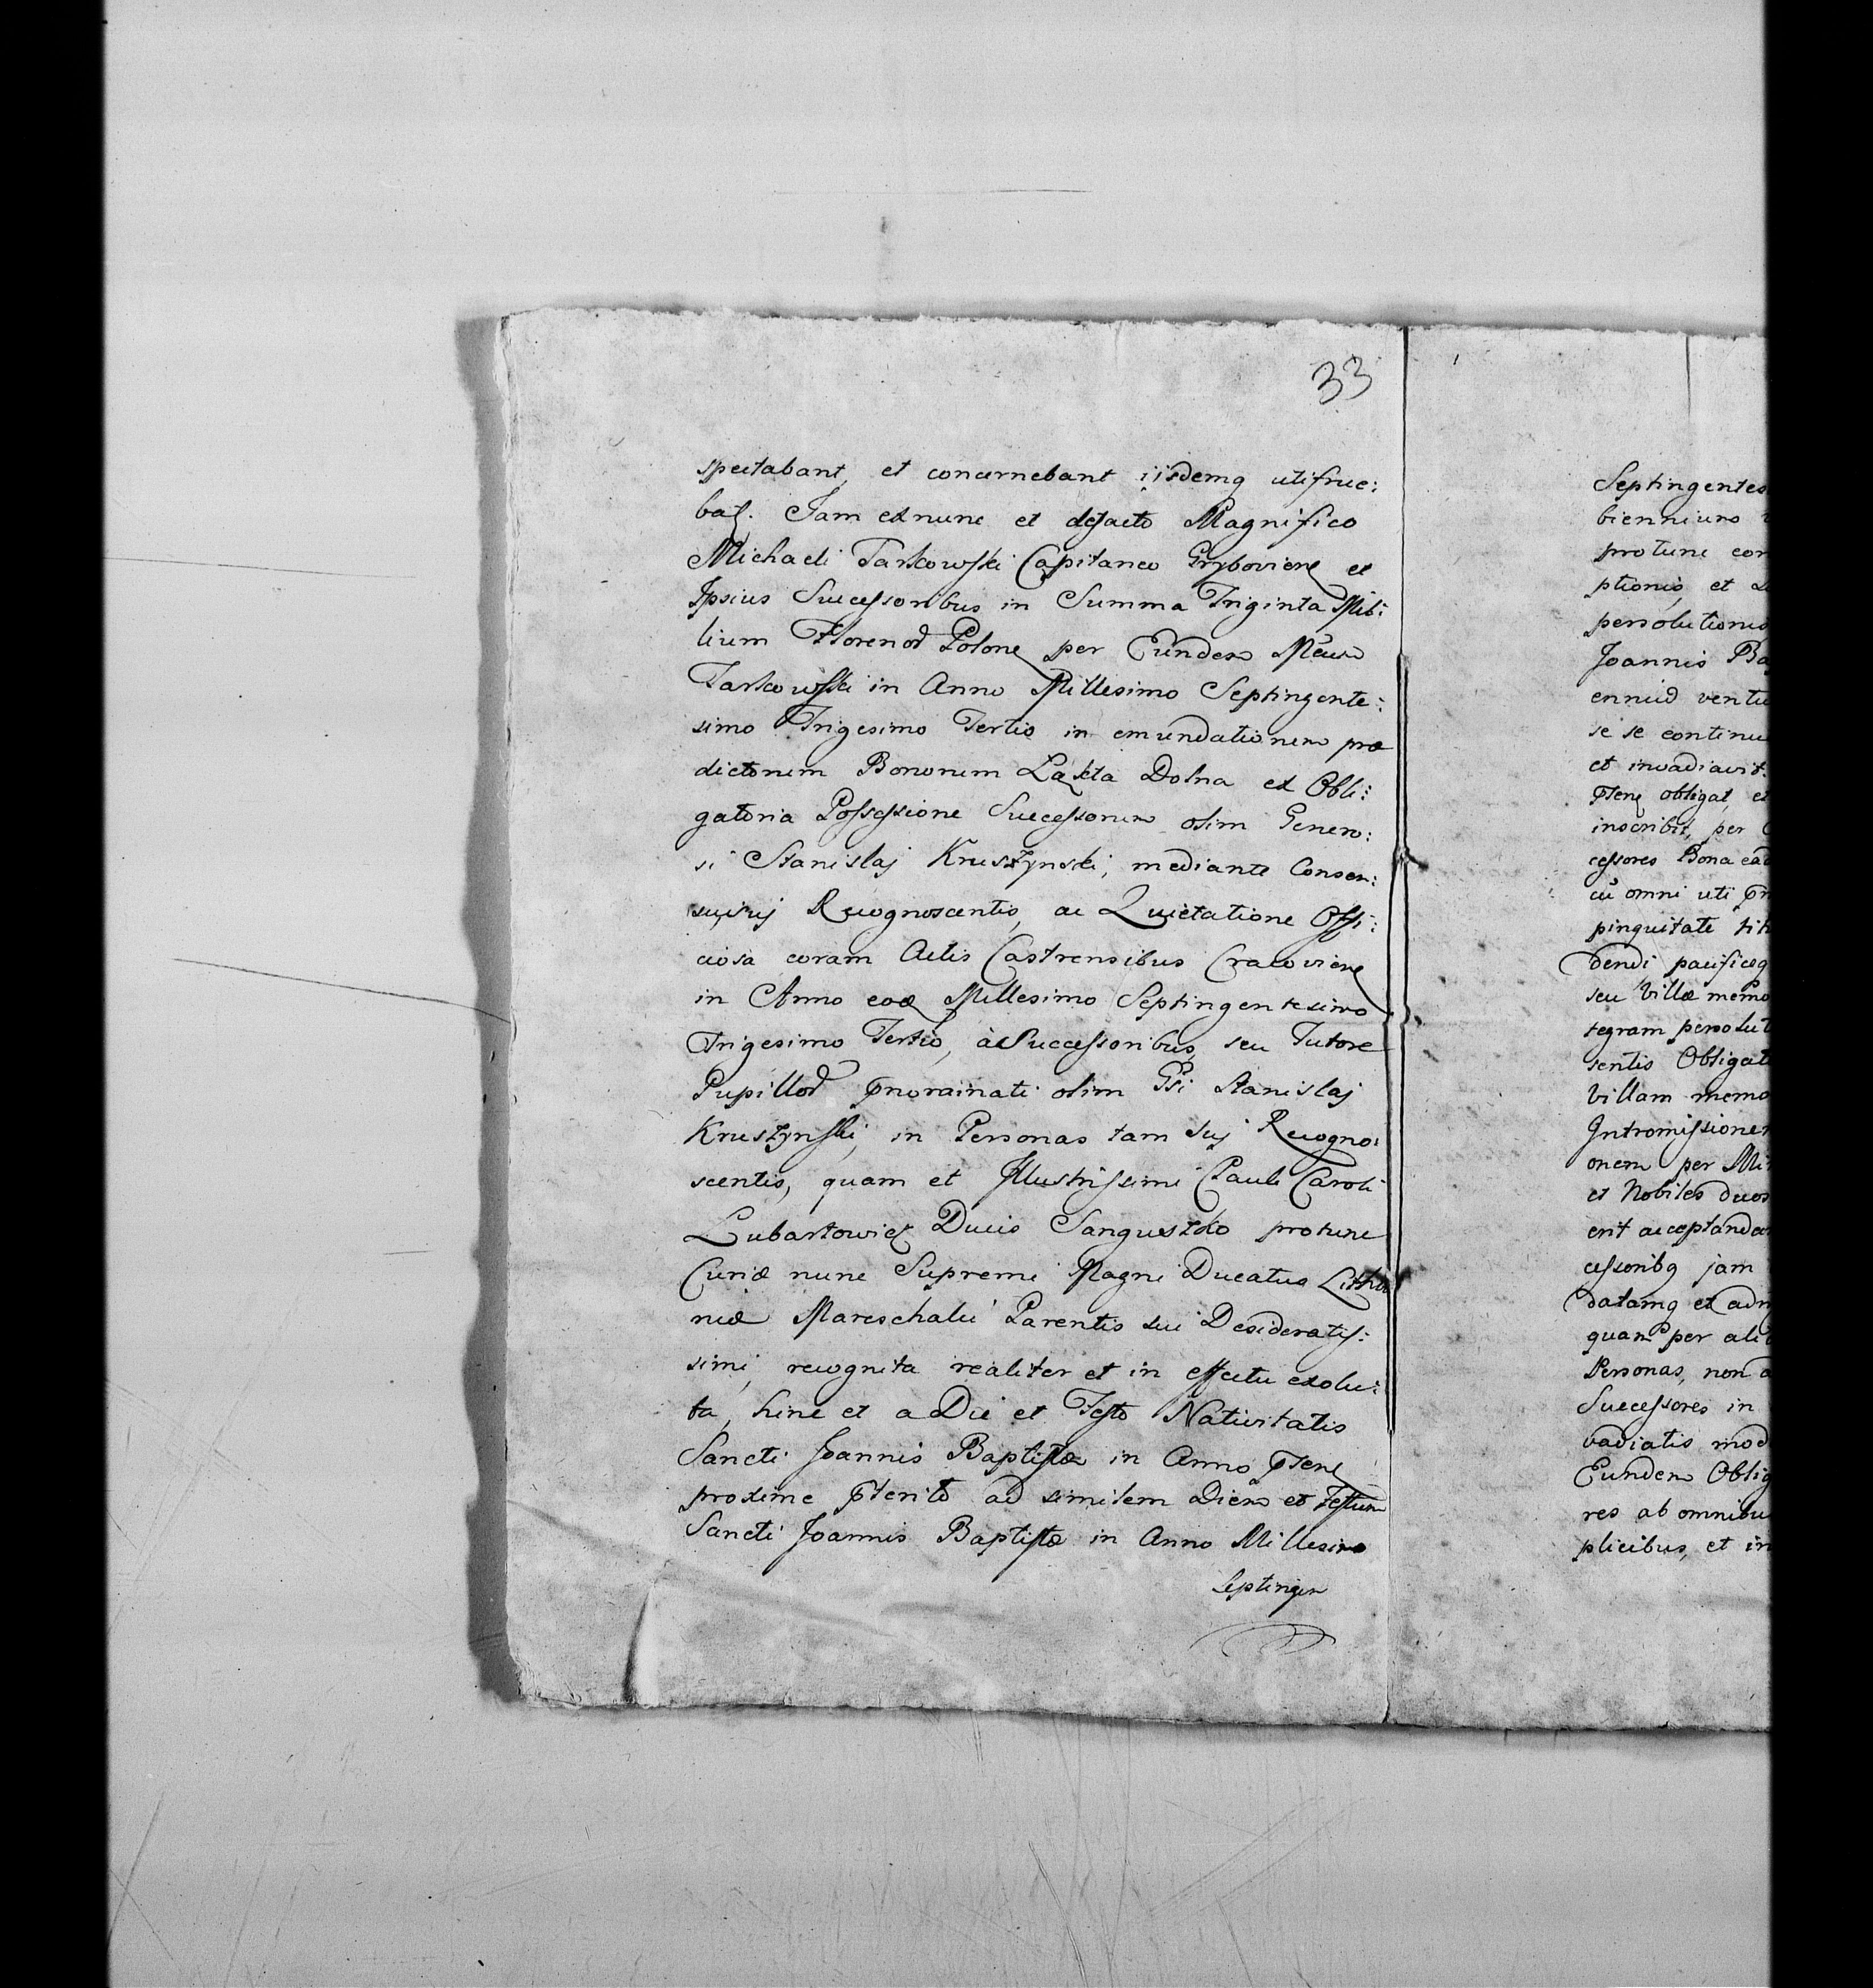 33
spectabant, et concernebant iisdemq utifrue:
bat. Jam exnunc et defacto Magnifico
Michaeli Tarkowski Capitaneo Grybovien et
Ipsius Successoribus in Summa Triginta Mil:
lium Floreno Polone per Eundem
Tarkowski in Anno Millesimo Septingente:
simo Trigesimo Tertio in emundationem præ
dictorum Bonorum Dolna ex Obli:
gatoria Possessione Successorum olim Genero:
si Stanislaj Kruszynski, mediante Consen:
Recognoscentis, ac Quietatione Offi:
ciosa coram Actis Castrensibus Cracovien
in Anno eod Millesimo Septingentesimo
Trigesimo Tertio, à Successoribus, seu Tutore
Pupillo olim Gsi Stanislaj
Kruszynski, in Personas tam suj Recogno:
scentis, quam et Illustrissimi Pauli Caroli
Lubartowicz Ducis Sanguszko protunc
Curiæ nunc Supremi Magni Ducatus Lithva
niæ Mareschalci Parentis sui Desideratis:
simi, recognita realiter et in effectu exolu:
ta, hinc et a Die et Festo Nativitatis
Sancti Joannis Baptistæ in Anno
proxime ad similem Diem et Festum
Sancti Joannis Baptistæ in Anno Millesimo
Septingen
Septingentes
biennium
protunc con
ptionis, et
persolutionis
Joannis Ba
ventu
se se continu
et invadiavit
obligat, et
inscribit, per
cessores Bona ead
cũ omni uti
pinguitate tit
dendi pacificeq
seu Villæ memo
tegram persolut
sentis Obligat
Villam memo
Intromissionem
onem per Mi
et Nobiles duos
erit acceptanda
cessoribq jam
datamq et adm
quam per ali
Personas, non a
Successores in
vadiatis mod
Eundem Oblig
res ab omnibu
plicibus, et in